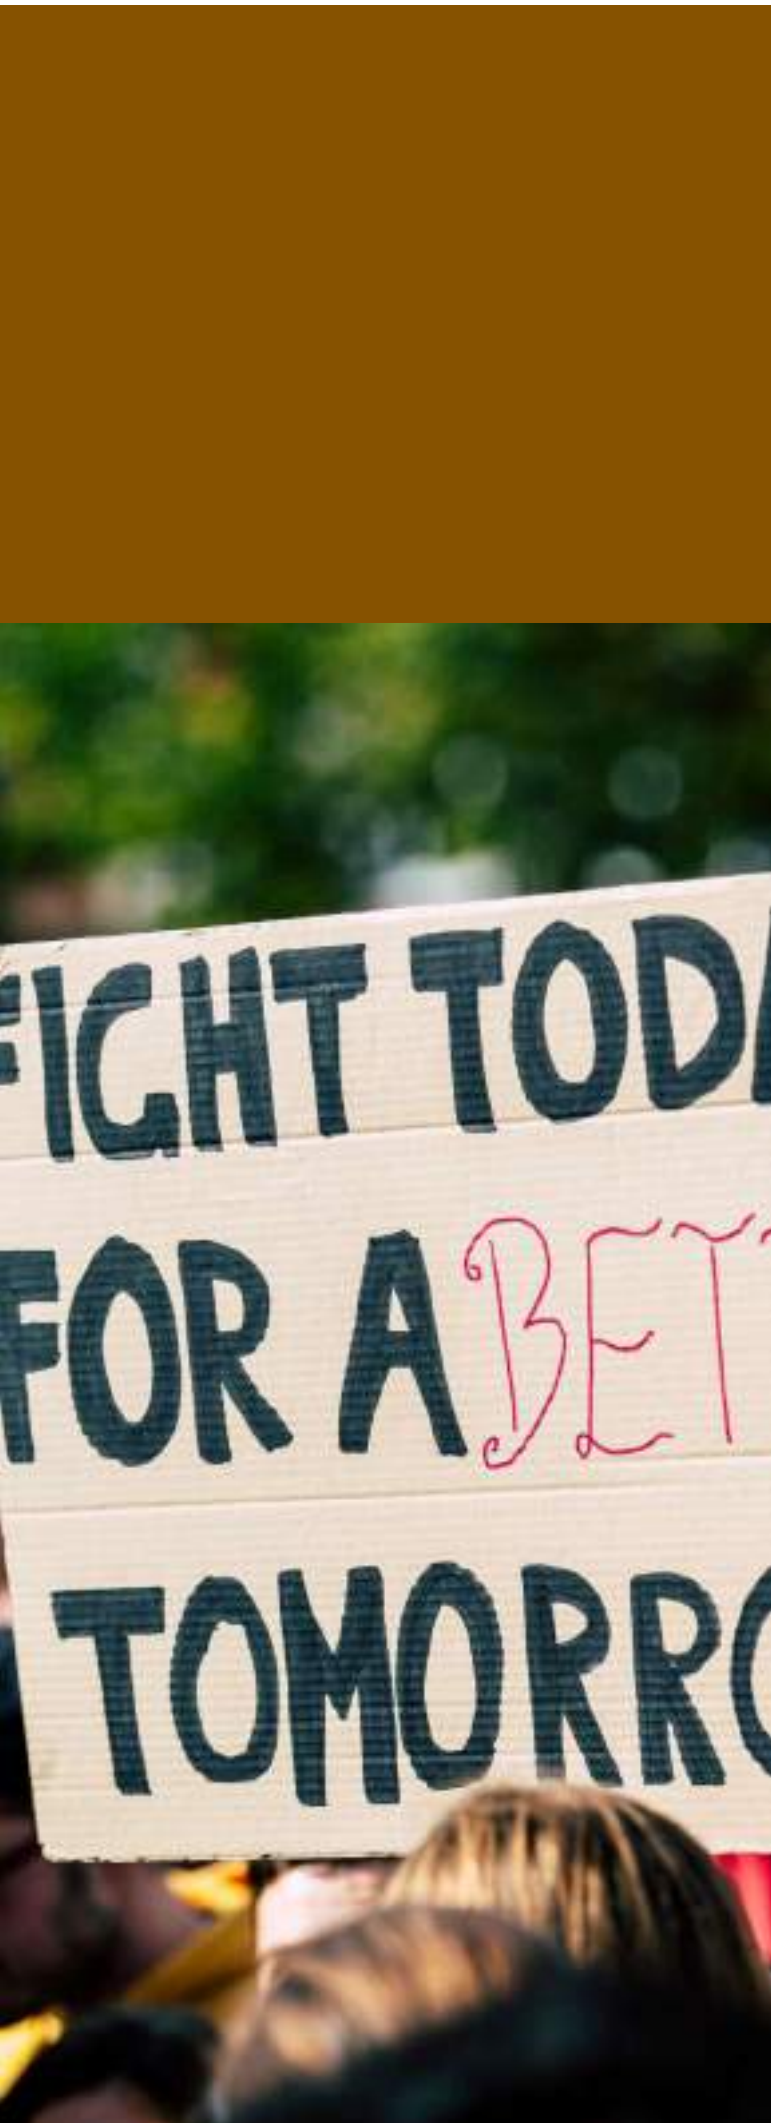 FIGHT TODA
FOR A BET
TOMORRO